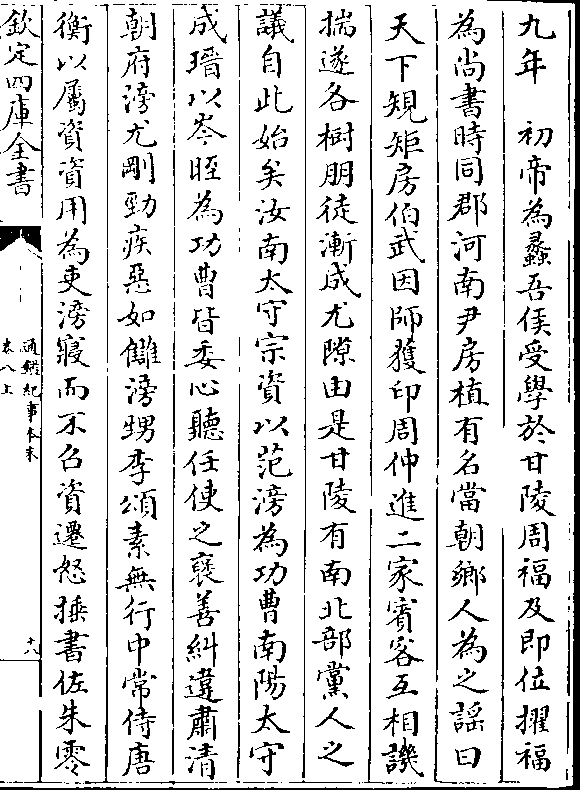 九年　初帝為蠡吾侯受學於甘陵周福及即位擢福
為尚書時同郡河南尹房植有名當朝鄉人為之謡曰
天下䂓矩房伯武因師獲印周仲進二家賓客互相譏
揣遂各樹朋徒漸成尤隙由是甘陵有南北部黨人之
議自此始矣汝南太守宗資以范滂為功曹南陽太守
成瑨以岑晊為功曹皆委心聽任使之襃善糾違肅清
朝府滂尤剛勁疾惡如讎滂甥李頌素無行中常侍唐
衡以屬資資用為吏滂寢而不召資遷怒捶書佐朱零
欽定四庫全書
通鑑紀事本末
卷八上
十八